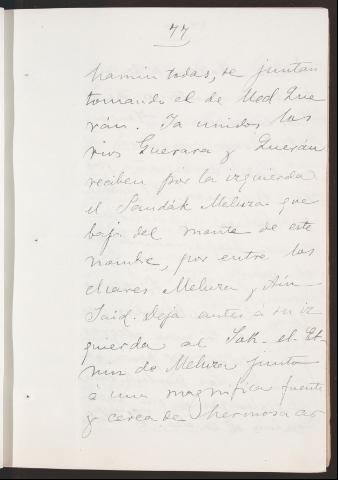 77
hamin todas, se juntan
tomando el de Ued Que
rán. Ya unidos los
rios Guerara y Querán
reciben por la izquierda
el Sandák Meluza que
baja del monte de este
nombre, por entre los
duares Meluza y Ain
Said. Deja antes á su iz
quierda al Sok-el-Et-
nin de Meluza junto
á una magnifica fuente
y cerca de hermosa ar